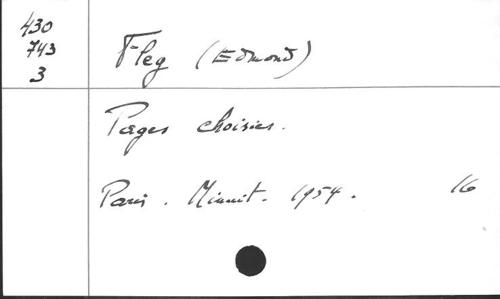 430
743
3
Fleg (Edmond)
Pages choisies.
Paris. Minuit. 1954. 16